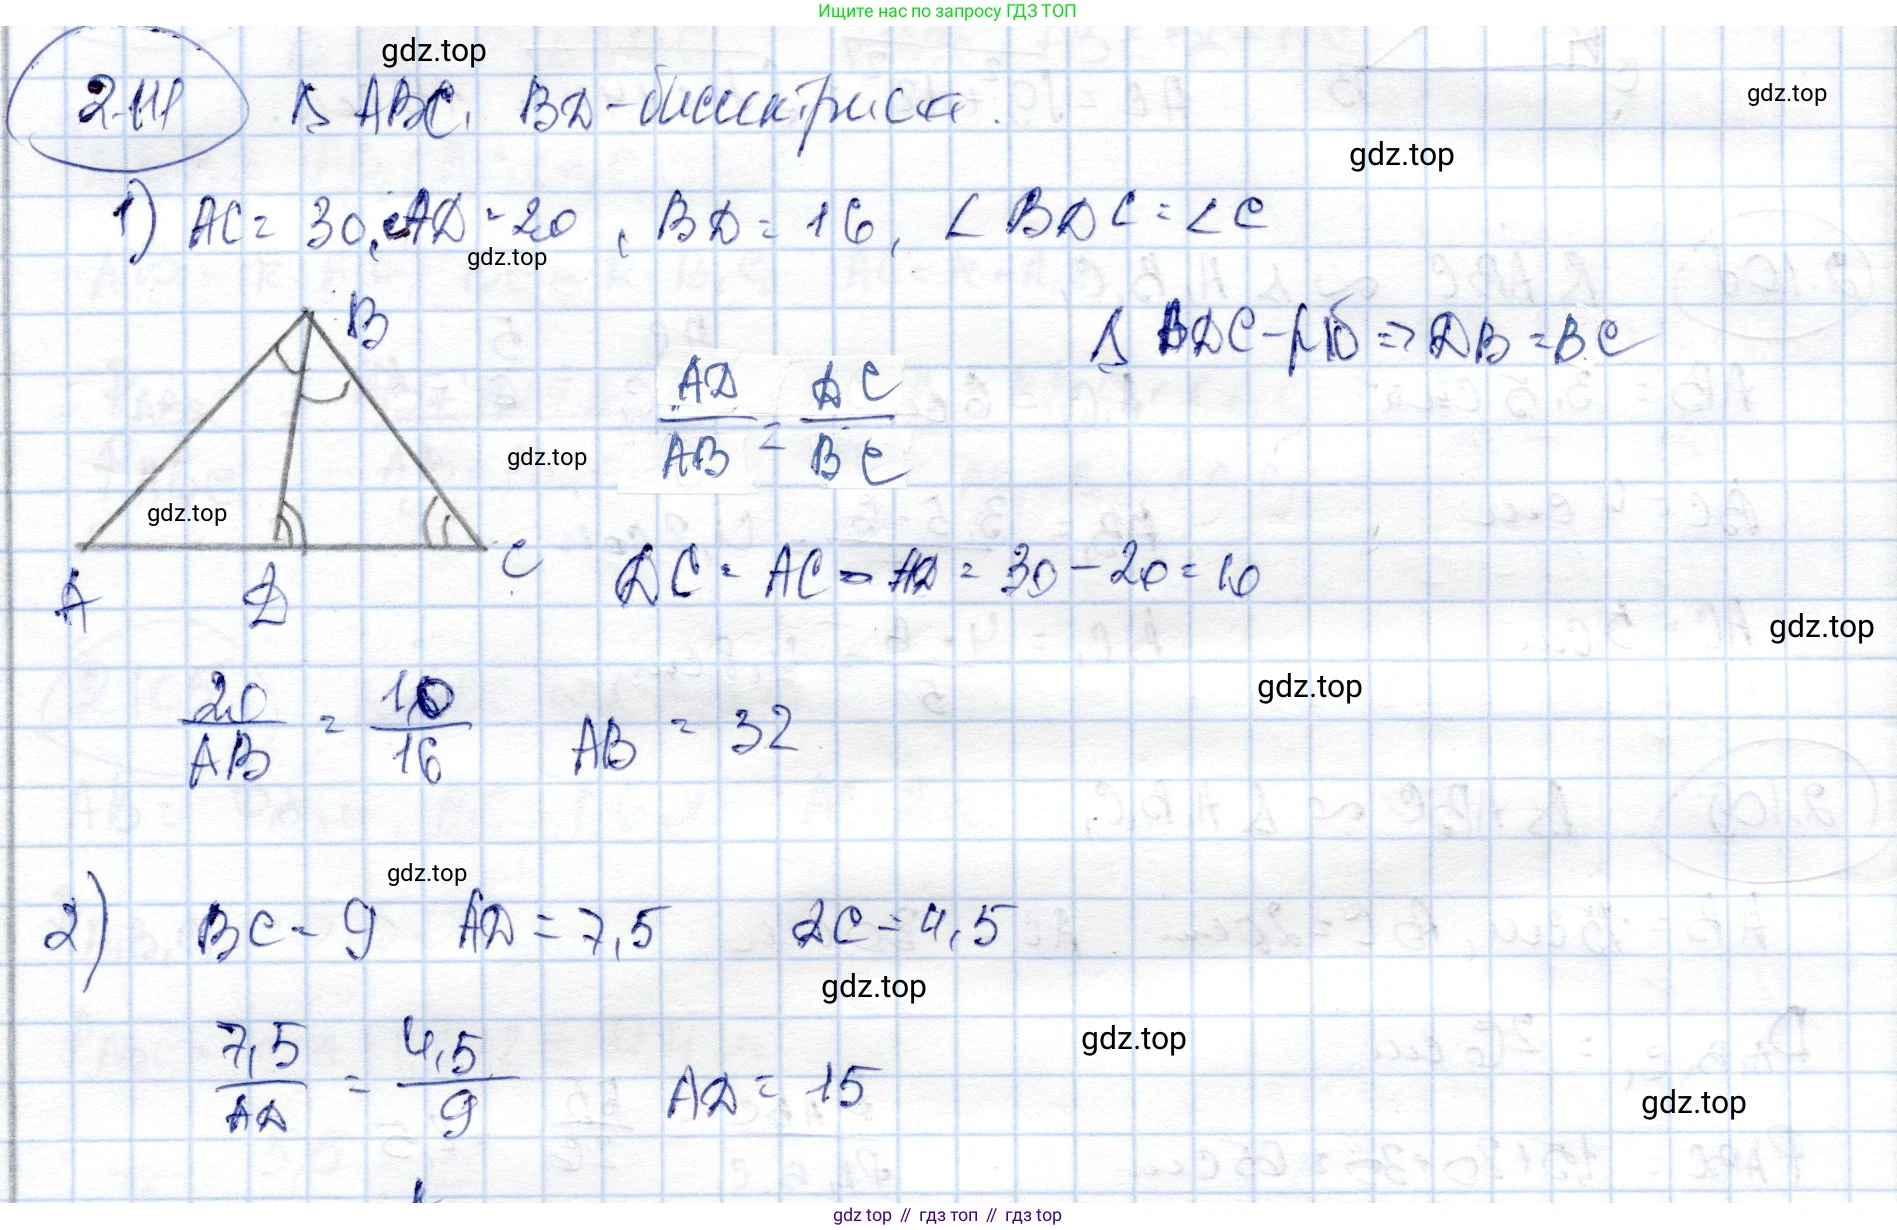 Ищите нас по запросу ГДЗ ТОП
gdz.top
2.111 Δ ABC, BD - биссектриса.
gdz.top
gdz.top
1) AC = 30, AD = 20, BD = 16, ∠BDC = ∠C
gdz.top
B
Δ BDC - р/б => DB = BC
AD/AB = DC/BC
gdz.top
gdz.top
A D C
DC = AC - AD = 30 - 20 = 10
gdz.top
gdz.top
20/AB = 10/16 AB = 32
gdz.top
2) BC = 9 AD = 7,5 DC = 4,5
gdz.top
gdz.top
7,5/AD = 4,5/9 AD = 15
gdz.top
gdz top // гдз топ // гдз top